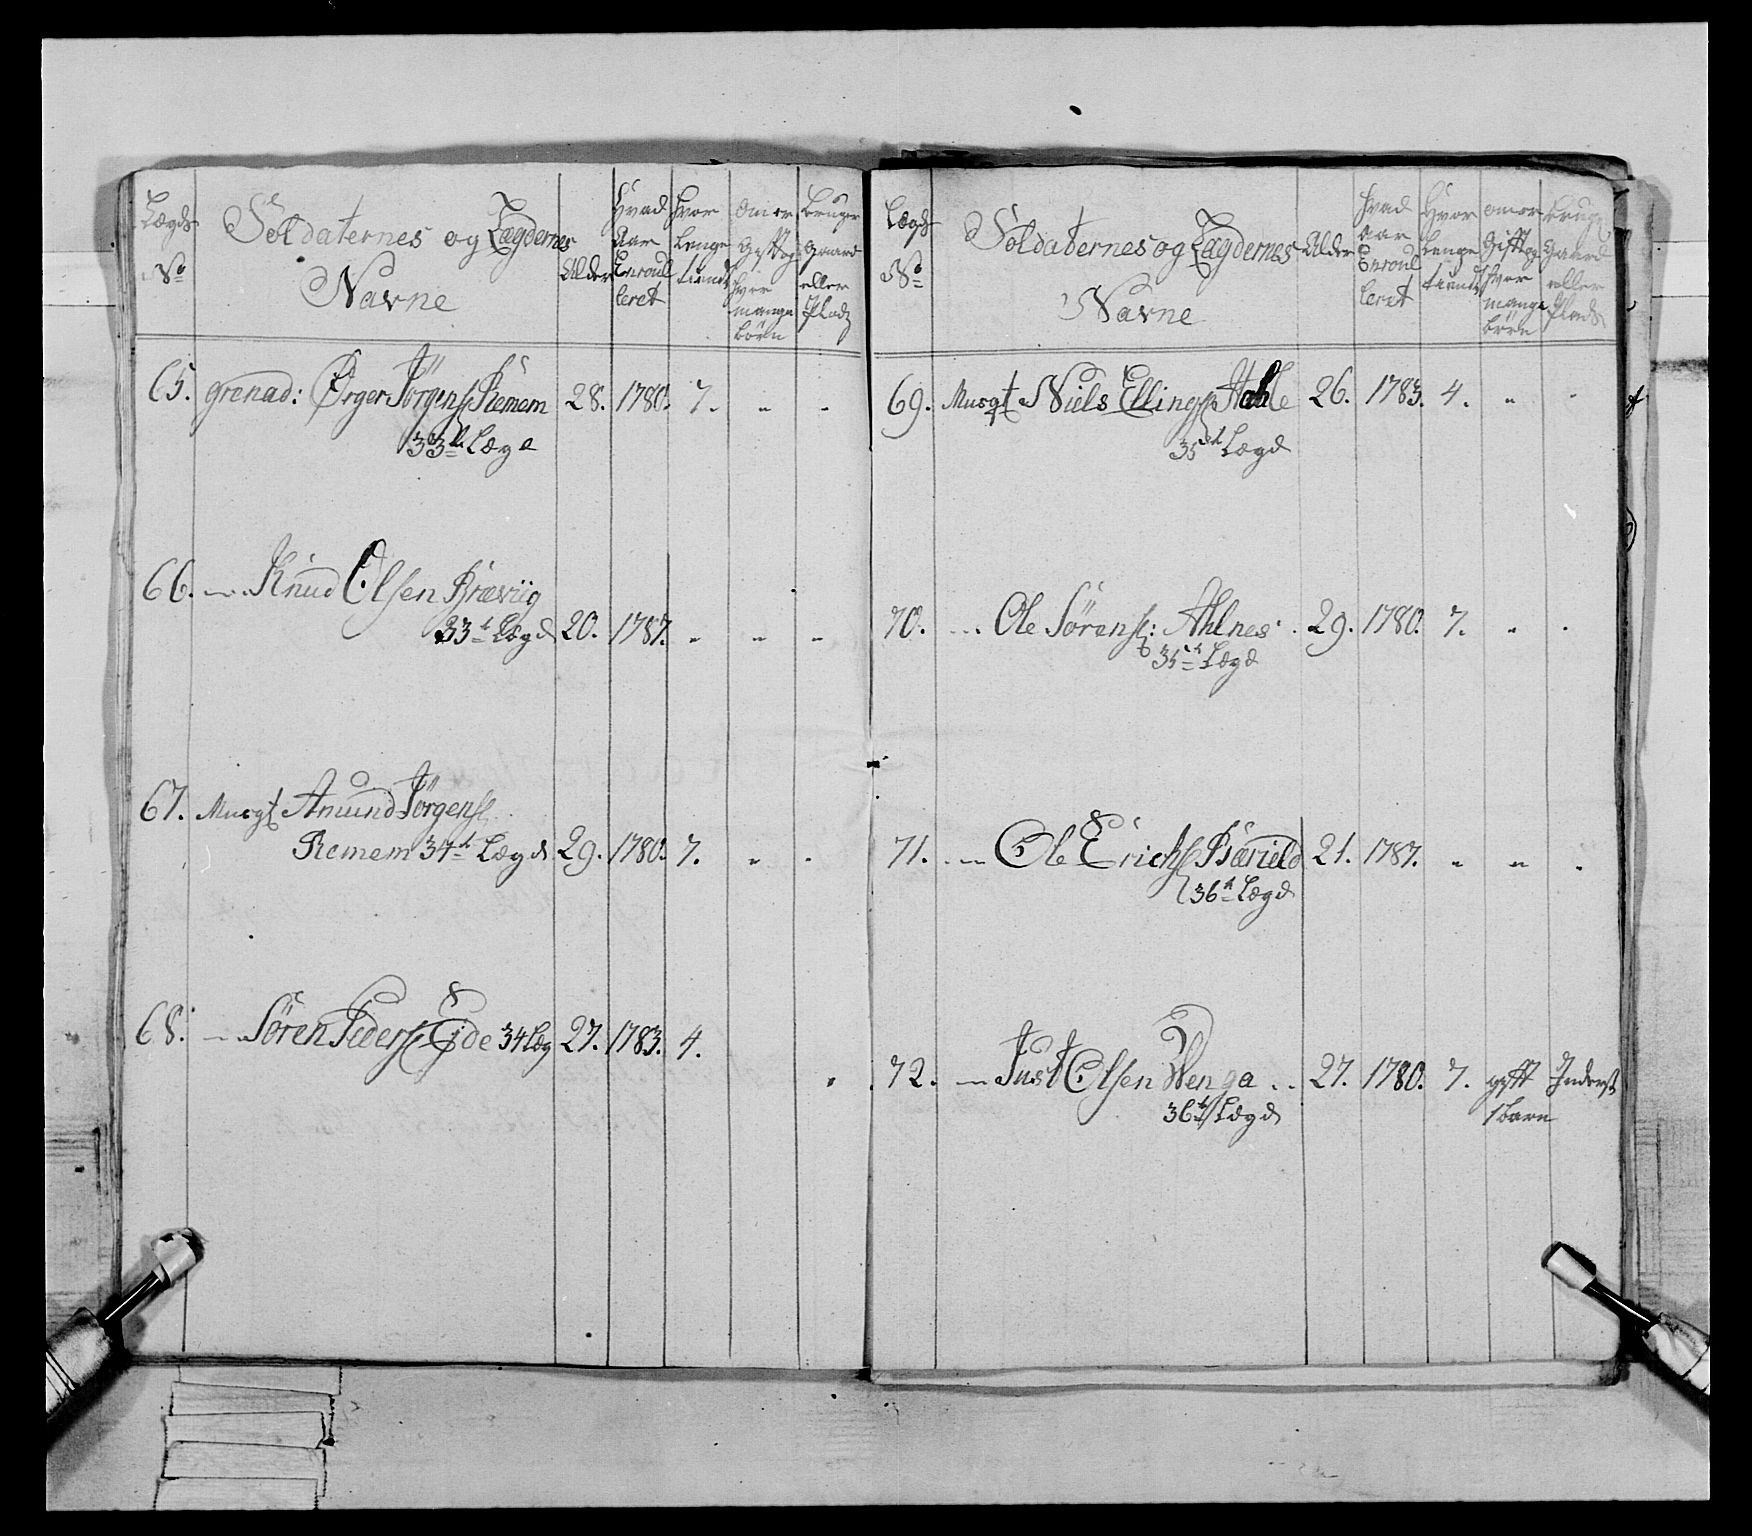 Lægds No
Soldaternes og Lægdernes Navne
Alder
Hvad Aar Enroulleret
Hvor Lenge tient
om er Gift og hvor mange børn
bruger Gaard eller Plads
65. grenad: Ørger Jørgens Remem 28. 1780. 7. " "
33te Lægd
66. — Knud Olsen Brævig
33te Lægd 20. 1787. " " "
67. Musqt Amund Jørgens
Remem 34te Lægd 29. 1780. 7. " "
68. — Søren Peders Eide 34 Læg 27. 1783. 4.
Lægds No
Soldaternes og Lægdernes Navne
Alder
hvad aar Enroulleret
Hvor Lenge tient
om er Gift og hvor mange børn
brug Gaard eller Plads
69. Musqt Niels Ellings Hahle 26. 1783. 4. " "
35te Lægd
70. — Ole Sørens: Ahlnes 29. 1780. 7. " "
35te Lægd
71. — Ole Erichs 21. 1787. " " "
36te Lægd
72. — Just Olsen Wenga 27. 1780. 7. gift Inderst
36te Lægd 1 barn